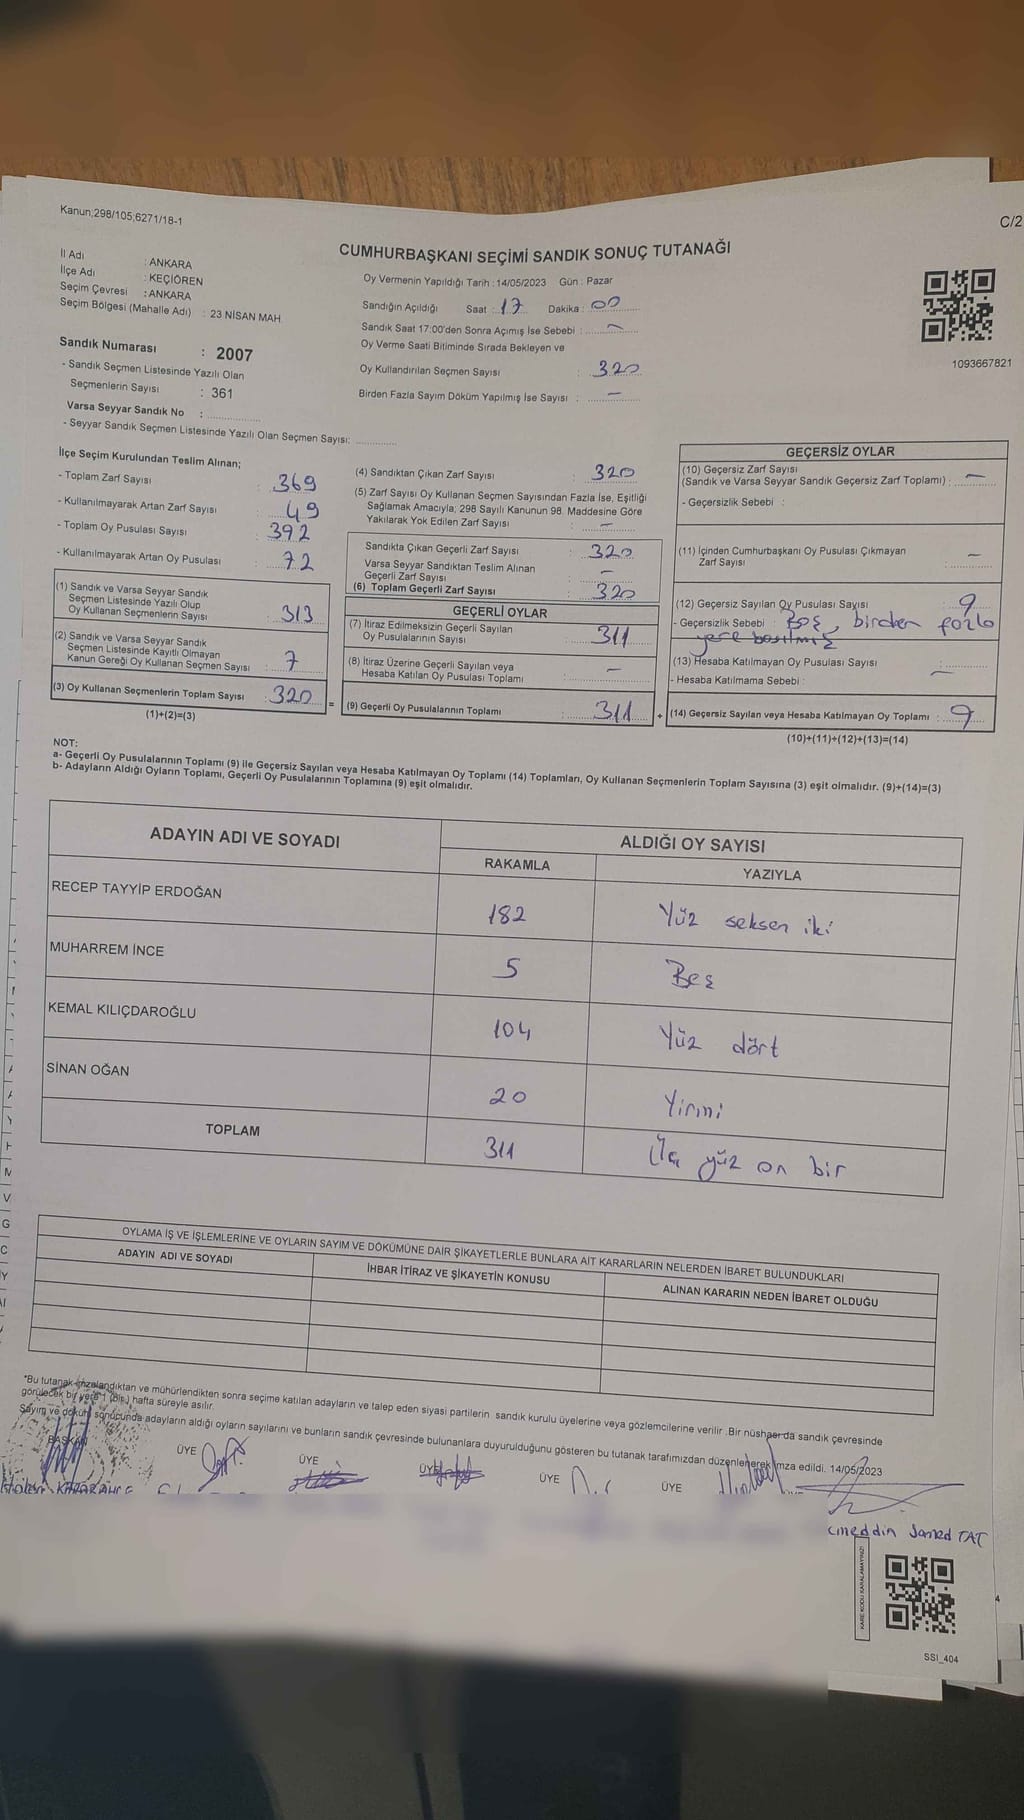 Kanun;298/105;6271/18-1
C/2
CUMHURBAŞKANI SEÇİMİ SANDIK SONUÇ TUTANAĞI
İl Adı : ANKARA
İlçe Adı : KEÇİÖREN
Seçim Çevresi : ANKARA
Seçim Bölgesi (Mahalle Adı) : 23 NİSAN MAH.
Sandık Numarası : 2007
- Sandık Seçmen Listesinde Yazılı Olan
Seçmenlerin Sayısı : 361
Varsa Seyyar Sandık No :
- Seyyar Sandık Seçmen Listesinde Yazılı Olan Seçmen Sayısı:
Oy Vermenin Yapıldığı Tarih : 14/05/2023 Gün : Pazar
Sandığın Açıldığı Saat : 17 Dakika : 00
Sandık Saat 17:00'den Sonra Açılmış İse Sebebi : —
Oy Verme Saati Bitiminde Sırada Bekleyen ve
Oy Kullandırılan Seçmen Sayısı : 320
Birden Fazla Sayım Döküm Yapılmış İse Sayısı : —
1093667821
İlçe Seçim Kurulundan Teslim Alınan;
- Toplam Zarf Sayısı : 369
- Kullanılmayarak Artan Zarf Sayısı : 49
- Toplam Oy Pusulası Sayısı : 392
- Kullanılmayarak Artan Oy Pusulası : 72
(1) Sandık ve Varsa Seyyar Sandık
Seçmen Listesinde Yazılı Olup
Oy Kullanan Seçmenlerin Sayısı : 313
(2) Sandık ve Varsa Seyyar Sandık
Seçmen Listesinde Kayıtlı Olmayan
Kanun Gereği Oy Kullanan Seçmen Sayısı : 7
(3) Oy Kullanan Seçmenlerin Toplam Sayısı : 320
(1)+(2)=(3)
(4) Sandıktan Çıkan Zarf Sayısı : 320
(5) Zarf Sayısı Oy Kullanan Seçmen Sayısından Fazla İse, Eşitliği
Sağlamak Amacıyla; 298 Sayılı Kanunun 98. Maddesine Göre
Yakılarak Yok Edilen Zarf Sayısı : —
Sandıkta Çıkan Geçerli Zarf Sayısı : 320
Varsa Seyyar Sandıktan Teslim Alınan
Geçerli Zarf Sayısı : —
(6) Toplam Geçerli Zarf Sayısı : 320
GEÇERLİ OYLAR
(7) İtiraz Edilmeksizin Geçerli Sayılan
Oy Pusulalarının Sayısı : 311
(8) İtiraz Üzerine Geçerli Sayılan veya
Hesaba Katılan Oy Pusulası Toplamı : —
= (9) Geçerli Oy Pusulalarının Toplamı : 311
GEÇERSİZ OYLAR
(10) Geçersiz Zarf Sayısı
(Sandık ve Varsa Seyyar Sandık Geçersiz Zarf Toplamı) : —
- Geçersizlik Sebebi :
(11) İçinden Cumhurbaşkanı Oy Pusulası Çıkmayan
Zarf Sayısı : —
(12) Geçersiz Sayılan Oy Pusulası Sayısı : 9
- Geçersizlik Sebebi : Boş, birden fazla
yere basılmış
(13) Hesaba Katılmayan Oy Pusulası Sayısı : —
- Hesaba Katılmama Sebebi :
+ (14) Geçersiz Sayılan veya Hesaba Katılmayan Oy Toplamı : 9
(10)+(11)+(12)+(13)=(14)
NOT:
a- Geçerli Oy Pusulalarının Toplamı (9) ile Geçersiz Sayılan veya Hesaba Katılmayan Oy Toplamı (14) Toplamları, Oy Kullanan Seçmenlerin Toplam Sayısına (3) eşit olmalıdır. (9)+(14)=(3)
b- Adayların Aldığı Oyların Toplamı, Geçerli Oy Pusulalarının Toplamına (9) eşit olmalıdır.
ADAYIN ADI VE SOYADI ALDIĞI OY SAYISI
RAKAMLA YAZIYLA
RECEP TAYYİP ERDOĞAN 182 Yüz seksen iki
MUHARREM İNCE 5 Beş
KEMAL KILIÇDAROĞLU 104 Yüz dört
SİNAN OĞAN 20 Yirmi
TOPLAM 311 Üç yüz on bir
OYLAMA İŞ VE İŞLEMLERİNE VE OYLARIN SAYIM VE DÖKÜMÜNE DAİR ŞİKAYETLERLE BUNLARA AİT KARARLARIN NELERDEN İBARET BULUNDUKLARI
ADAYIN ADI VE SOYADI İHBAR İTİRAZ VE ŞİKAYETİN KONUSU ALINAN KARARIN NEDEN İBARET OLDUĞU
*Bu tutanak imzalandıktan ve mühürlendikten sonra seçime katılan adayların ve talep eden siyasi partilerin sandık kurulu üyelerine veya gözlemcilerine verilir .Bir nüshası da sandık çevresinde
görülecek bir yere 1 (bir) hafta süreyle asılır.
Sayım ve döküm sonucunda adayların aldığı oyların sayılarını ve bunların sandık çevresinde bulunanlara duyurulduğunu gösteren bu tutanak tarafımızdan düzenlenerek imza edildi. 14/05/2023
BAŞKAN ÜYE ÜYE ÜYE ÜYE ÜYE
Samed TAT
KARE KODU KARALAMAYINIZ!
SSI_404